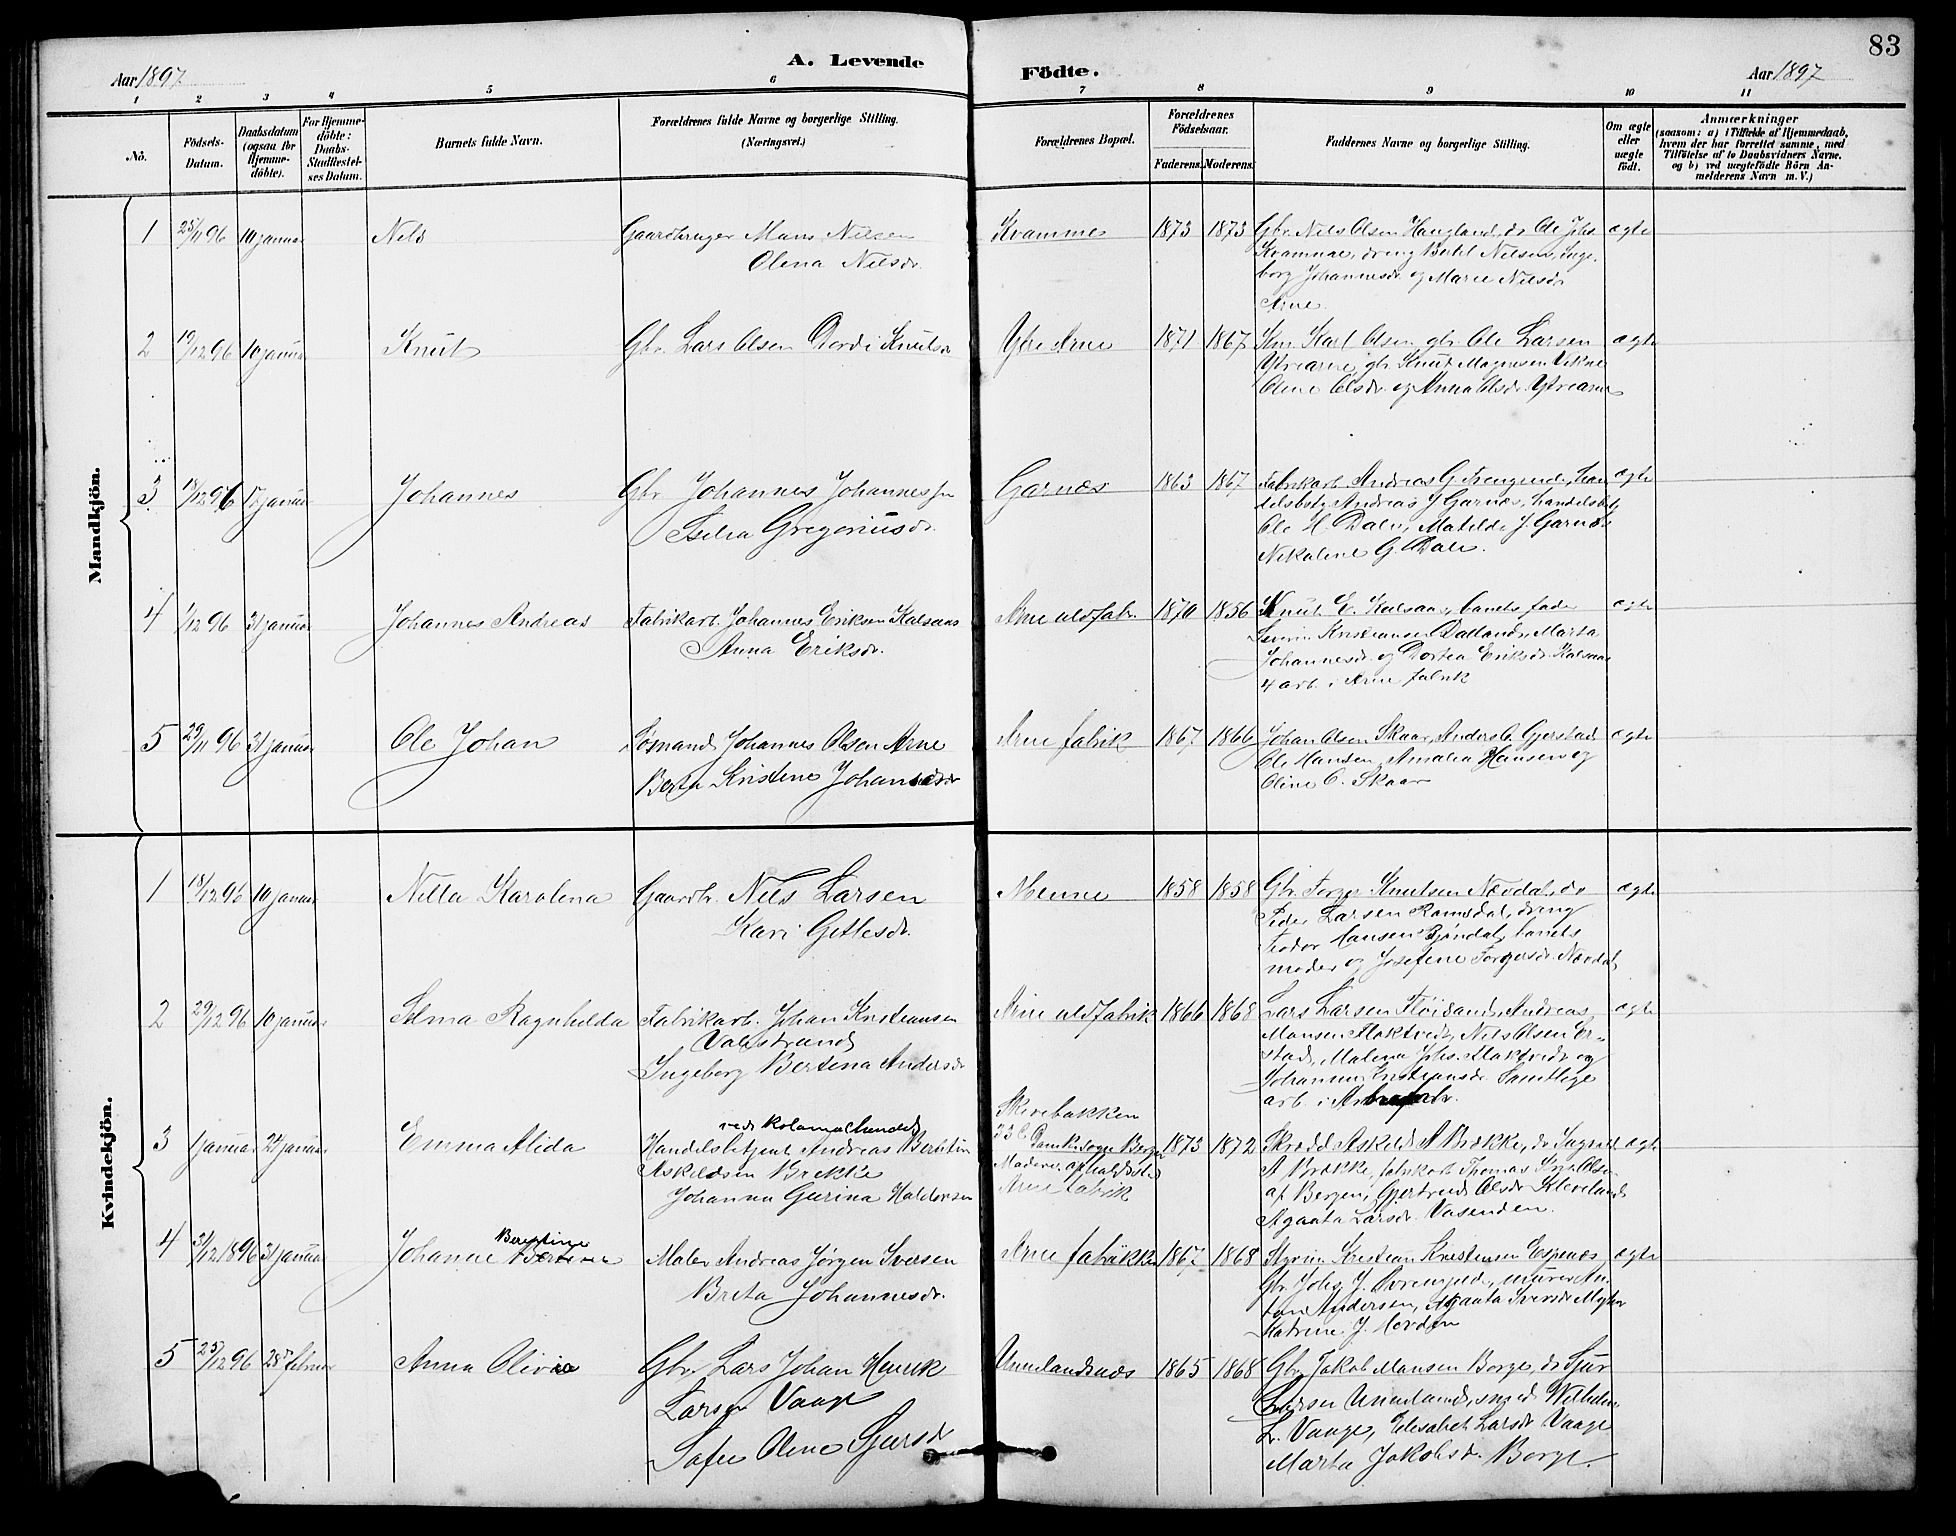 83
A. Levende
Födte.
Aar 1897
Aar 1897
1 2 3 4 5 6 7 8 9 10 11
Nô.
Födsels-
Datum.
Daabsdatum
(ogsaa for
Hjemme-
döbte).
For Hjemme-
döbte:
Daabs-
Stadfæstel-
ses Datum.
Barnets fulde Navn.
Forældrenes fulde Navne og borgerlige Stilling.
(Næringsvei.)
Forældrenes Bopæl.
Forældrenes
Födselsaar.
Faderens. Moderens.
Faddernes Navne og borgerlig Stilling.
Om ægte
eller
uægte
födt.
Anmærkninger
(saasom: a) i Tilfælde af Hjemmedaab,
hvem der har forrettet samme, med
Tilföielse af to Daabsvidners Navne.
og b) ved uægtefödte Börn An-
melderens Navn m. V.)
Mandkjön.
1 25/11 96 10 januar Nels
Gaardbruger Mans Nilsen
Olena Nilsdr.
Kvamme 1873 1873
Gbr. Nils Olsen Haugland, do Ole Johs
Kvamme, dreng Bertil Nilsen, Inge-
borg Johannesdr. og Marie Nilsdr
Arne.
ægte
2 19/12 96 10 januar Knut
Gbr. Lars Olsen Dordi Knutsdr
Ytre Arne 1871 1867
Karl Olsen gbr. Ole Larsen
Ytrearne, gbr. Knut Magnesen Vikne
Oline Olsdr. og Anna Olsdr. Ytrearne
ægte
3 18/12 96 januar Johannes
Gbr Johannes Johannessen
Gregoriusdr.
Garnæs 1863 1867
Fabrikarb. Andreas G. han
delsbetj. Andreas J Garnæs, handelsbetj
Ole H. Dale, Matilde J. Garnæs
Nikoline G. Dale.
ægte
4 1/12 96 31 januar Johannes Andreas
Fabrikarb. Johannes Eriksen Kalsaas
Anna Eriksdr.
Arne uldfabr. 1870 1856
Knut E. Kalsaas, barnets fader
Severin Kristiansen Dalland, Marta
Johannesdr. og Dortea Eriksdr. Kalsaas
4 arb. i Arne fabrik
ægte
5 29/11 96 31 januar Ole Johan
Sömand Johannes Olsen Arne
Berta Kristine Johansdr
Arne fabrik 1867 1866
Johan Olsen Skaar, Anders O. Gjerstad
Ole Hansen, Amalia Hansen og
Oline O. Skaar
ægte
Kvindekjön.
1 18/12 96 10 januar Nilla Karolina
Gaardbr. Nils Larsen
Kari Gitlesdr.
Menne 1858 1858
Gbr. Torger Knutsen Nævdal, do
Peder Larsen Ramsdal, dreng
Teodor Hansen Bjöndal, barnets
moder og Josefine Torgersdr. Nævdal,
ægte
2 29/12 96 10 januar Selma Ragnhilda
Fabrikarb. Johan Kristiansen
Valestrand
Ingeborg Bertina Andersdr
Arne uldfabrik 1866 1868
Lars Larsen Flöisand, Andreas
Monsen Floktveidt, Nils Olsen Er-
stad, Malena Johs. Floktveidt og
Johanna Kristiansdr. Samtlige
arb. i Arnefabr.
ægte
3 1 januar 24 januar Emma Alida
ved kolonialhandel
Handelsbetjent Andreas Bertitin
Askildsen Brekke
Johanna Gurina Haldorsen
Skivebakken
33 C Domk. sogn Bergen
Moderen opholdssted
Arne fabrik
1873 1872
Skrædd Askild A Brække, do Ingvald
A Brække, fabrikarb Thomas Olsen
af Bergen, Gjertrud Olsdr Kleveland
Agaata Larsdr. Vasenden.
ægte
4 31/12 1896 31 januar Johanne Bertine
Berntine
Maler Andreas Jörgen Iversen
Brita Johannesdr.
Arne fabrikk 1867 1868
Styrm Kristian Kristensen Espenæs
Gbr. Johs J. murer An-
ton Andersen, Agaata Iversdr
Katrine J.
ægte
5 25/12 96 28 februar Anna Olivia
Gbr Lars Johan Henrik
Larsen Vaage
Sofie Oline Sjursdr
Unnelandsnæs 1865 1868
Gbr Jakob Monsen Borge, do Sjur
Larsen Unneland, smed Wilhelm
L. Vaage, Elisabet Larsdr Vaage
Marta Jakobsdr. Borge.
ægte